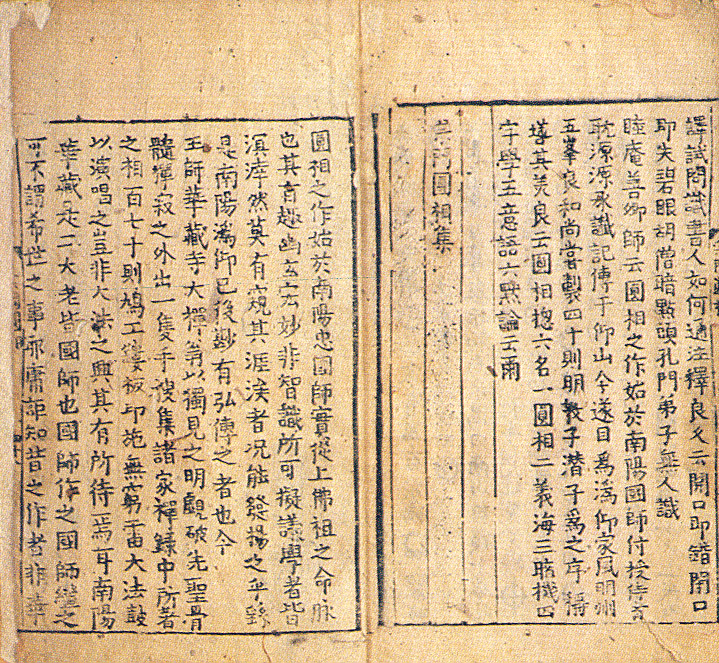 譯試問識書人如何通注釋良久云開口即錯開口
即失碧眼胡僧暗點頭孔門弟子無人識
睦庵善卿師云圓相之作始於南陽國師付授侍者
耽源源承讖記傳于仰山今遂目爲潙仰家風明州
五峯良和尚嘗製四十則明教子潛子爲之序稱
其美良云圓相揔六名一圓相二義海三暗機四
字學五意語六默論云雨
宗門圓相集
圓相之作始於南陽忠國師實從上佛祖之命脉
也其旨趣幽玄宏妙非智識所可擬議學者皆
溟涬然莫有窺其涯涘者况能發揚之乎
是南陽潙仰已後尠有弘傳之者也今
王師華藏寺大禪翁以獨見之明覷破先聖骨
髓禪寂之外出一隻手搜集諸家禪錄中所著
之相百七十則鳩工鏤板印施無窮雷大法鼓
以演唱之豈非大法之興其有所待焉耳南陽
華藏是二大老皆國師也國師作之國師繼之
可不謂希世之事耶庸詎知昔之作者非華